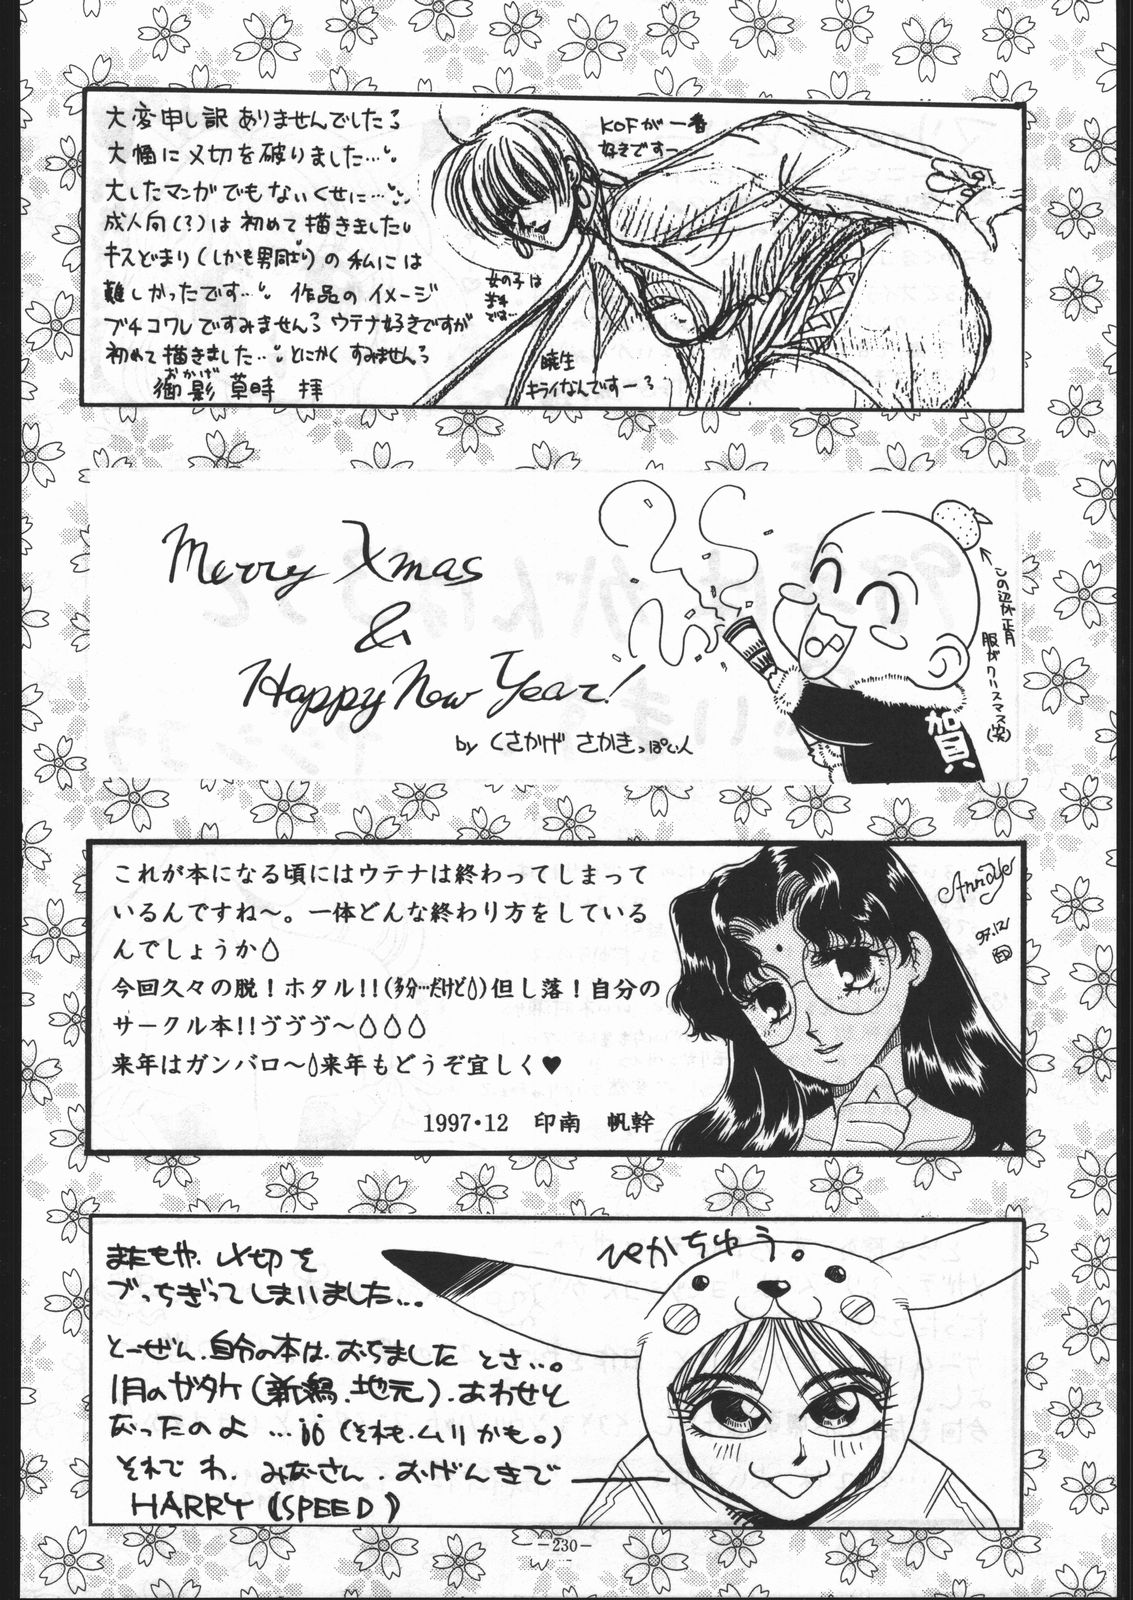 大変申し訳ありませんでした
大幅に〆切を破りました…
大したマンガでもないくせに…
成人向(?)は初めて描きました
キスどまり(しかも男同士)の私には
難しかったです… 作品のイメージ
ブチコワレですみません ウテナ好きですが
初めて描きました… とにかくすみません
おかげ
御影 草時 拝
KOFが一番
好きですー
女の子は
暁生
キライなんですー
Merry Xmas
&
Happy New Year!
by くさかげ さかきっぽい人
この辺が正月
服がクリスマス(笑)
賀
これが本になる頃にはウテナは終わってしまって
いるんですね〜。一体どんな終わり方をしている
んでしょうか
今回久々の脱!ホタル!!(多分…だけど)但し落!自分の
サークル本!!ヴヴヴ〜
来年はガンバロ〜来年もどうぞ宜しく♥
1997・12 印南 帆幹
97.12/
ぴかちゅう。
またもや、〆切を
ブっちぎってしまいました...
とーぜん、自分の本は、おちました とさ...。
1月のガタケ(新潟、地元)、あわせと
なったのよ …(それも、ムリかも。)
それでわ、みなさん、おげんきで
HARRY (SPEED)
-230-